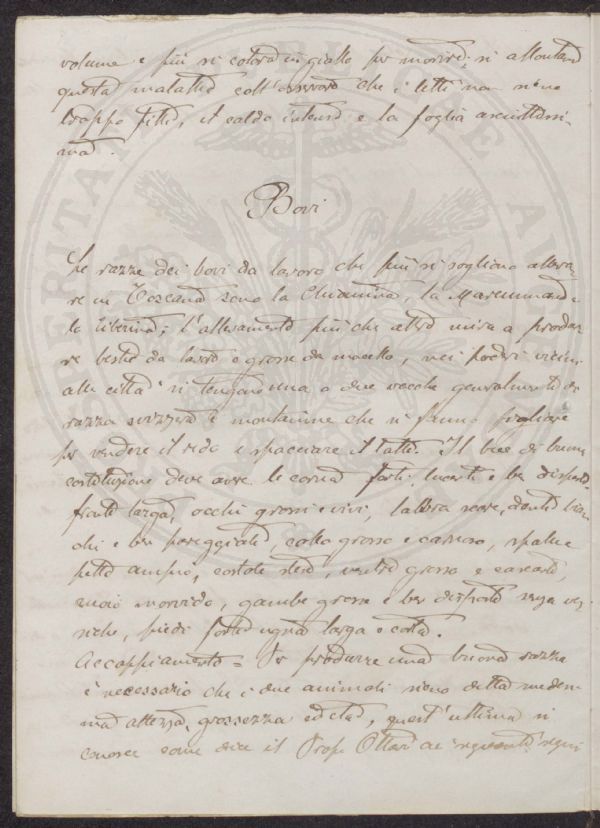 volume e più si colora in giallo per morire: si allontana
questa malattia coll'osservare che i letti non sieno
troppo fitti, il caldo intenso e la foglia asciuttissi-
ma.
Bovi
Le razze dei bovi da lavoro che più si sogliono alleva-
re in Toscana sono la Chianina, la Maremmana e
la Tiberina; l'allevamento più che altro mira a produr-
re bestie da lavoro o grosse da macello, nei poderi vicini
alle città si tengono una o due vacche generalmente di
razza svizzera e montanine che si fanno figliare
per vendere il redo e spacciare il latte. Il bue di buona
costituzione deve avere le corna forti lucenti e ben disposte
fronte larga, occhi grossi e vivi, labbra nere, denti bian-
chi e ben pareggiati, collo grosso e carnoso, spalle e
petto ampii, costole stese, ventre grosso e cascante,
cuoio morvido, gambe grosse e ben disposte senza ves-
siche, piedi forti ugna larga e corta.
Accoppiamento = Per produrre una buona razza
è necessario che i due animali sieno della medesi-
ma altezza, grossezza ed età, quest'ultima si
conosce come dice il Prof. Ottavi ai seguenti segni